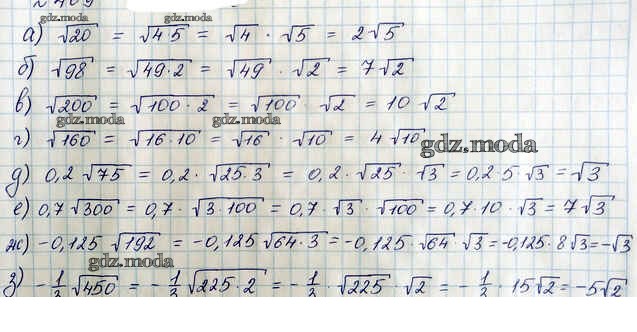 gdz.moda gdz.moda
а) √20 = √4·5 = √4 · √5 = 2√5
б) √98 = √49·2 = √49 · √2 = 7√2
в) √200 = √100·2 = √100 · √2 = 10 √2
gdz.moda gdz.moda
г) √160 = √16·10 = √16 · √10 = 4 √10
gdz.moda
д) 0,2 √75 = 0,2 · √25·3 = 0,2 · √25 · √3 = 0,2 · 5 · √3 = √3
е) 0,7 √300 = 0,7 · √3·100 = 0,7 · √3 · √100 = 0,7 · 10 · √3 = 7√3
ж) -0,125 √192 = -0,125 √64·3 = -0,125 · √64 · √3 = -0,125 · 8√3 = -√3
gdz.moda
з) -1/3 √450 = -1/3 √225·2 = -1/3 · √225 · √2 = -1/3 · 15√2 = -5√2